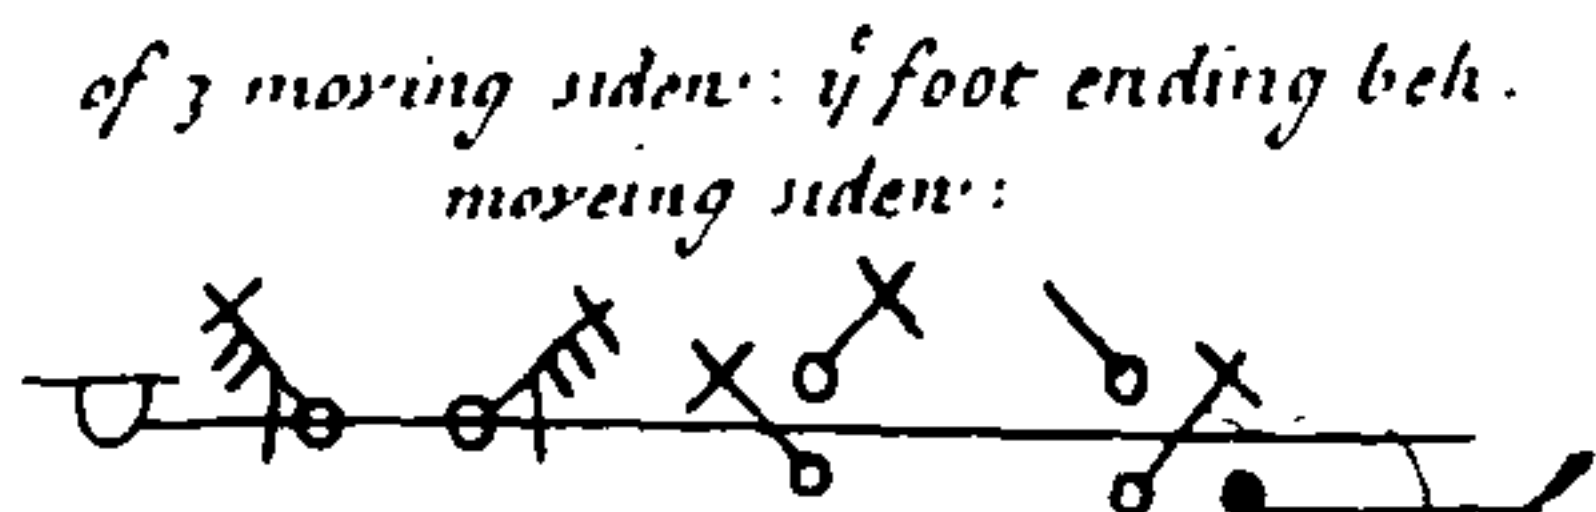 of 3 moving siden: yͤ foot ending beh.
moveing siden: